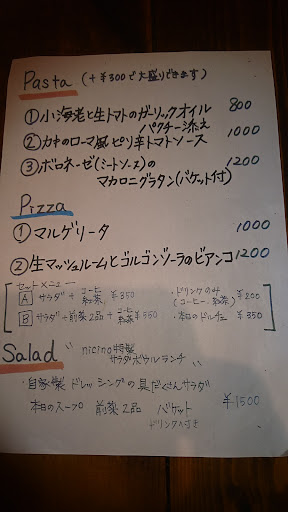 Pasta (+¥300で大盛りできます)
①小海老と生トマトのガーリックオイル 800
パクチー添え
②カキのローマ風ピリ辛トマトソース 1000
③ボロネーゼ(ミートソース)の 1200
マカロニグラタン(バケット付)
Pizza
①マルゲリータ 1000
②生マッシュルームとゴルゴンゾーラのビアンコ 1200
セットメニュー
A サラダ+コーヒー 紅茶 ¥350 ・ドリンクのみ (コーヒー、紅茶) ¥200
B サラダ+前菜2品+コーヒー 紅茶 ¥550 ・本日のドルチェ ¥350
Salad
"nicino特製
サラダボウルランチ"
・自家製ドレッシングの具だくさんサラダ
本日のスープ 前菜2品 バケット ¥1500
ドリンク付き